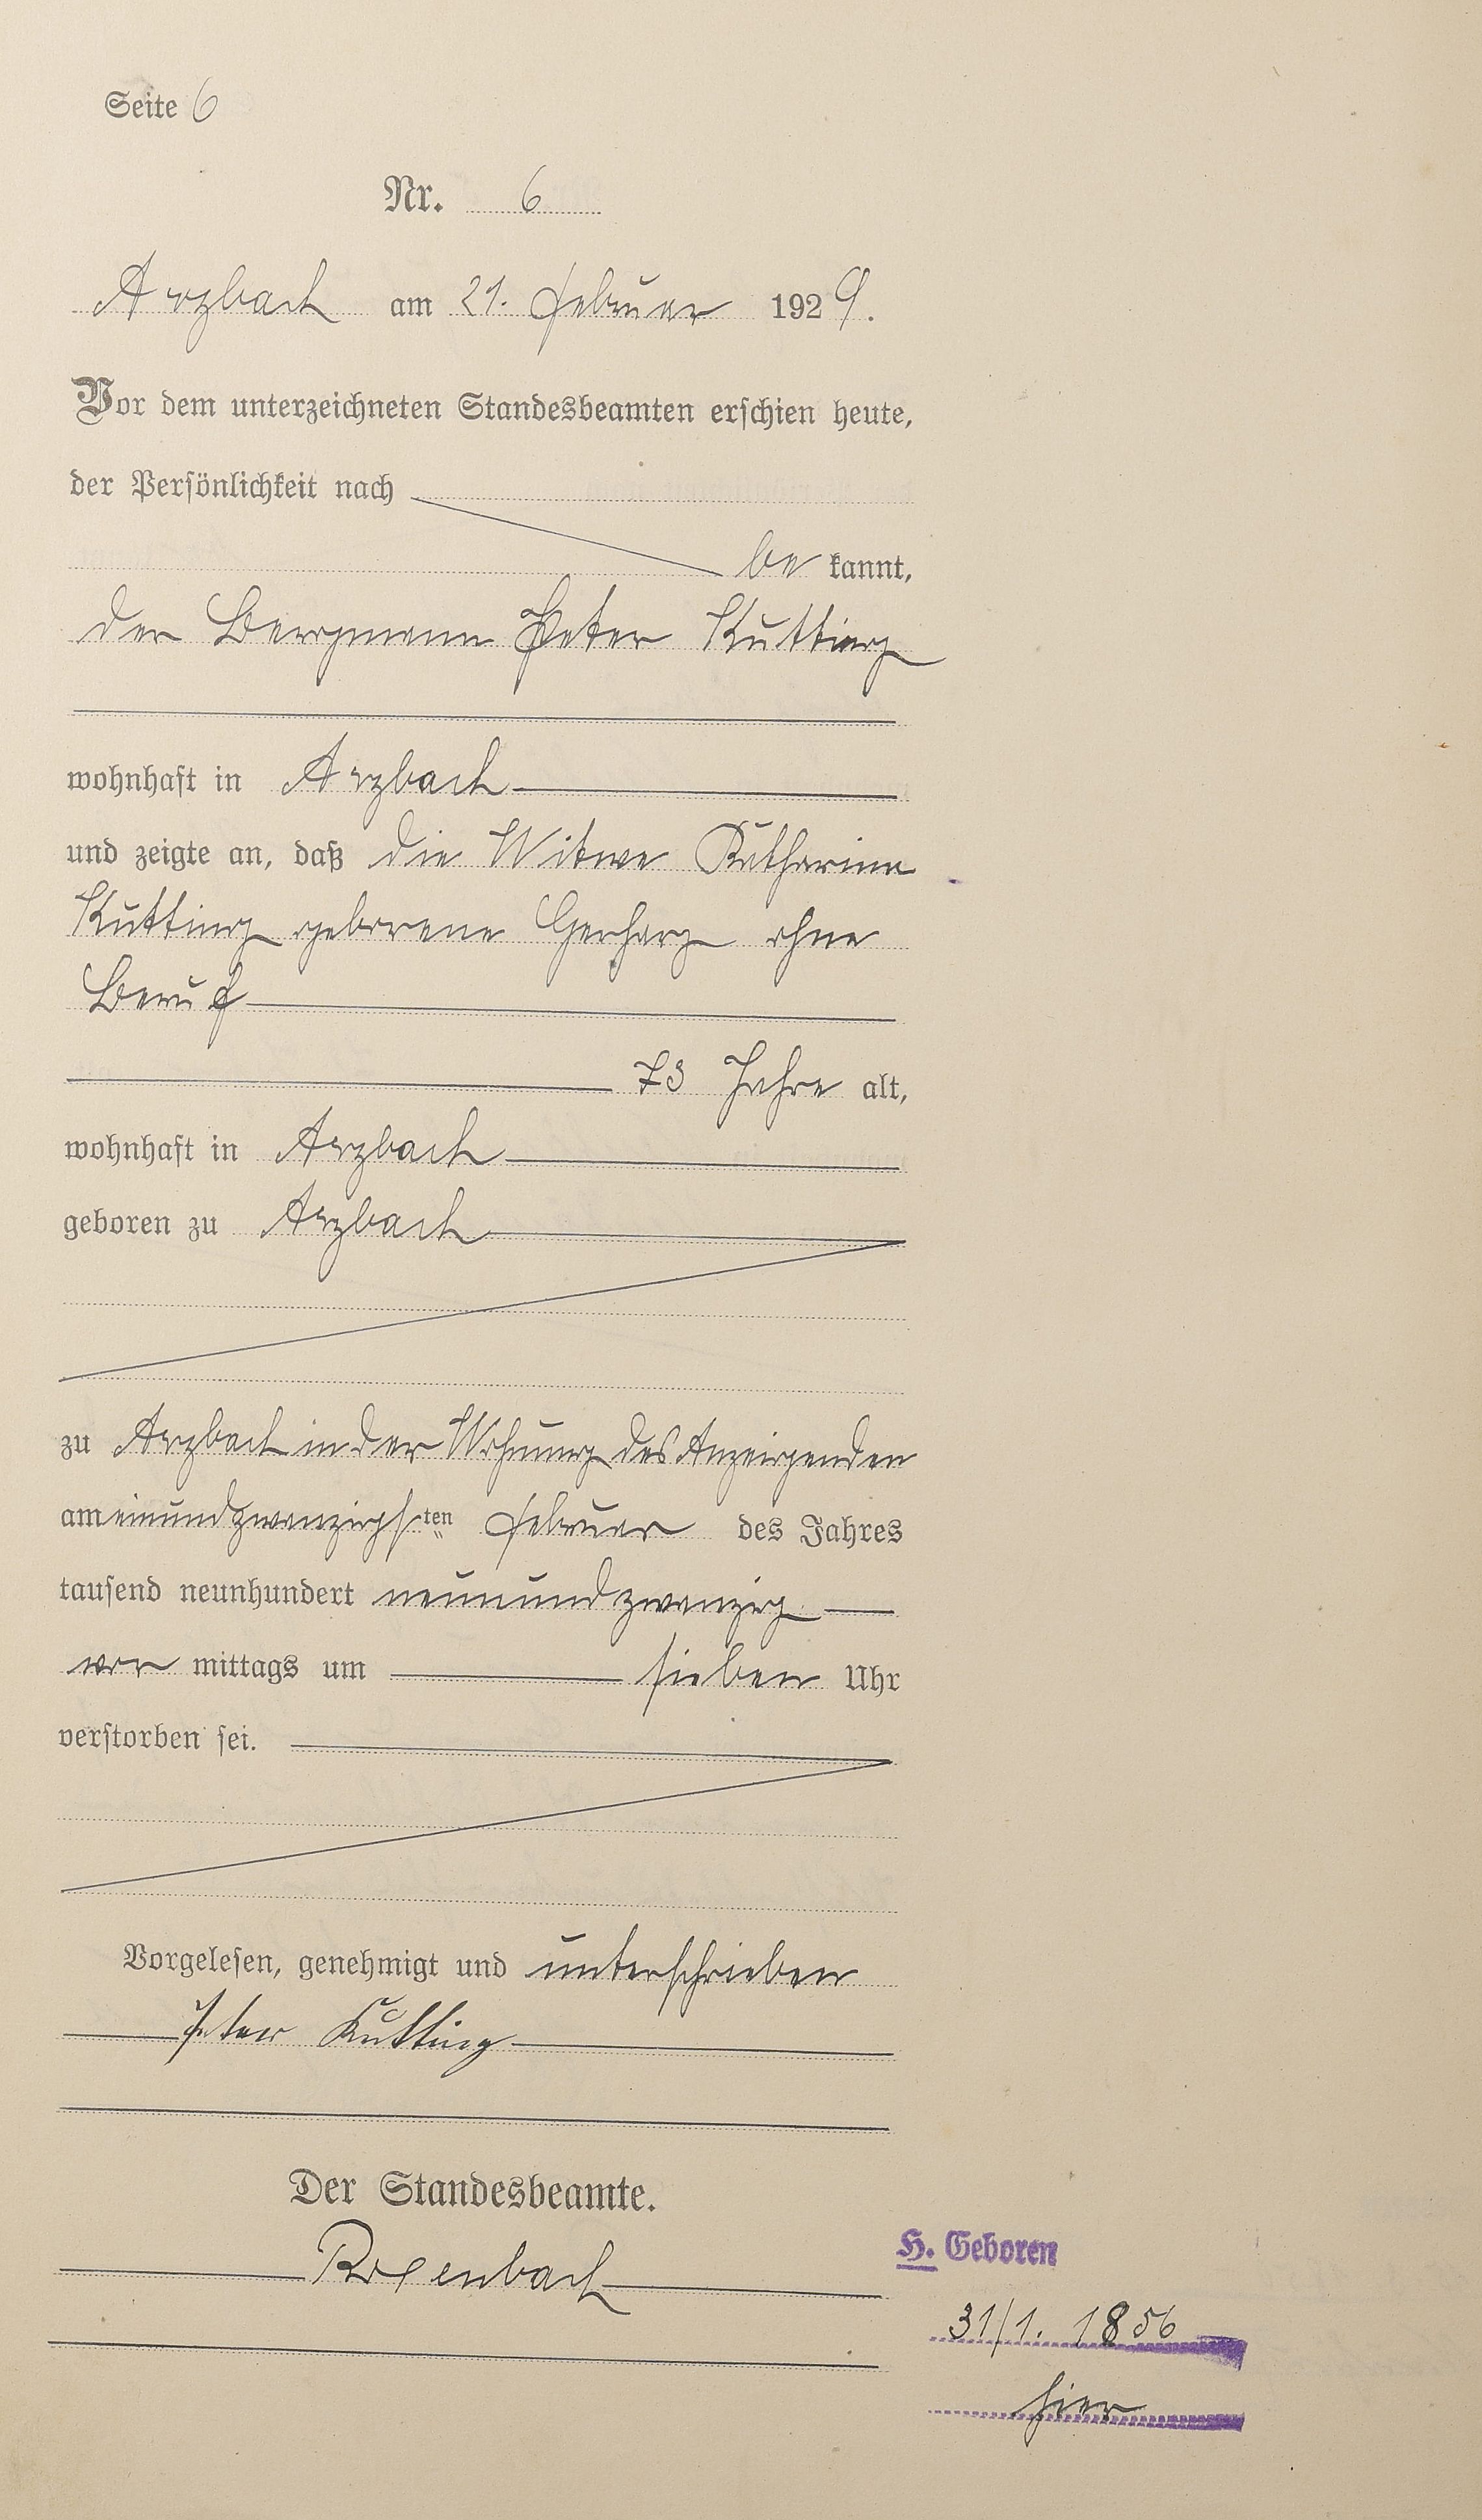 Seite 6
Nr. 6
Arzbach am 21. Februar 1929.
Vor dem unterzeichneten Standesbeamten erschien heute,
der Persönlichkeit nach
be kannt,
der Bergmann Peter Kutting
wohnhaft in Arzbach
und zeigte an, daß die Witwe Katharina
Kutting geborene Gerharz ohne
Beruf
73 Jahre alt,
wohnhaft in Arzbach
geboren zu Arzbach
zu Arzbach in der Wohnung des Anzeigenden
am einundzwanzigsten Februar des Jahres
tausend neunhundert neunundzwanzig
vor mittags um sieben Uhr
verstorben sei.
Vorgelesen, genehmigt und unterschrieben
Peter Kutting
Der Standesbeamte.
Rosenbach
H. Geboren
31/1. 1856
hier